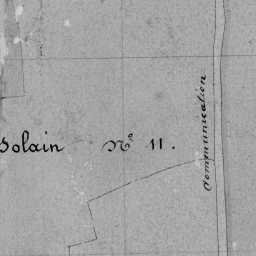 solain N° 11.
communication